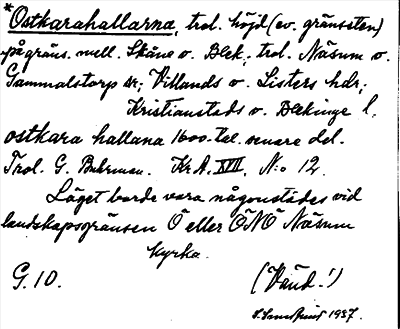 *Ostkarahallarna, trol. höjd (ev. gränssten)
på gräns. mell. Skåne o. Blek., trol. Näsum o.
Gammalstorp sn; Villands o. Listers hdr;
Kristianstads o. Blekinge l.
ostkara hallana 1600-tal. senare del.
Trol. G. Buhrman. Kr.A. XVII, N:o 12.
Läget borde vara någonstädes vid
landskapsgränsen Ö eller ÖNÖ Näsum
kyrka.
G. 10. (Vänd!)
1937.